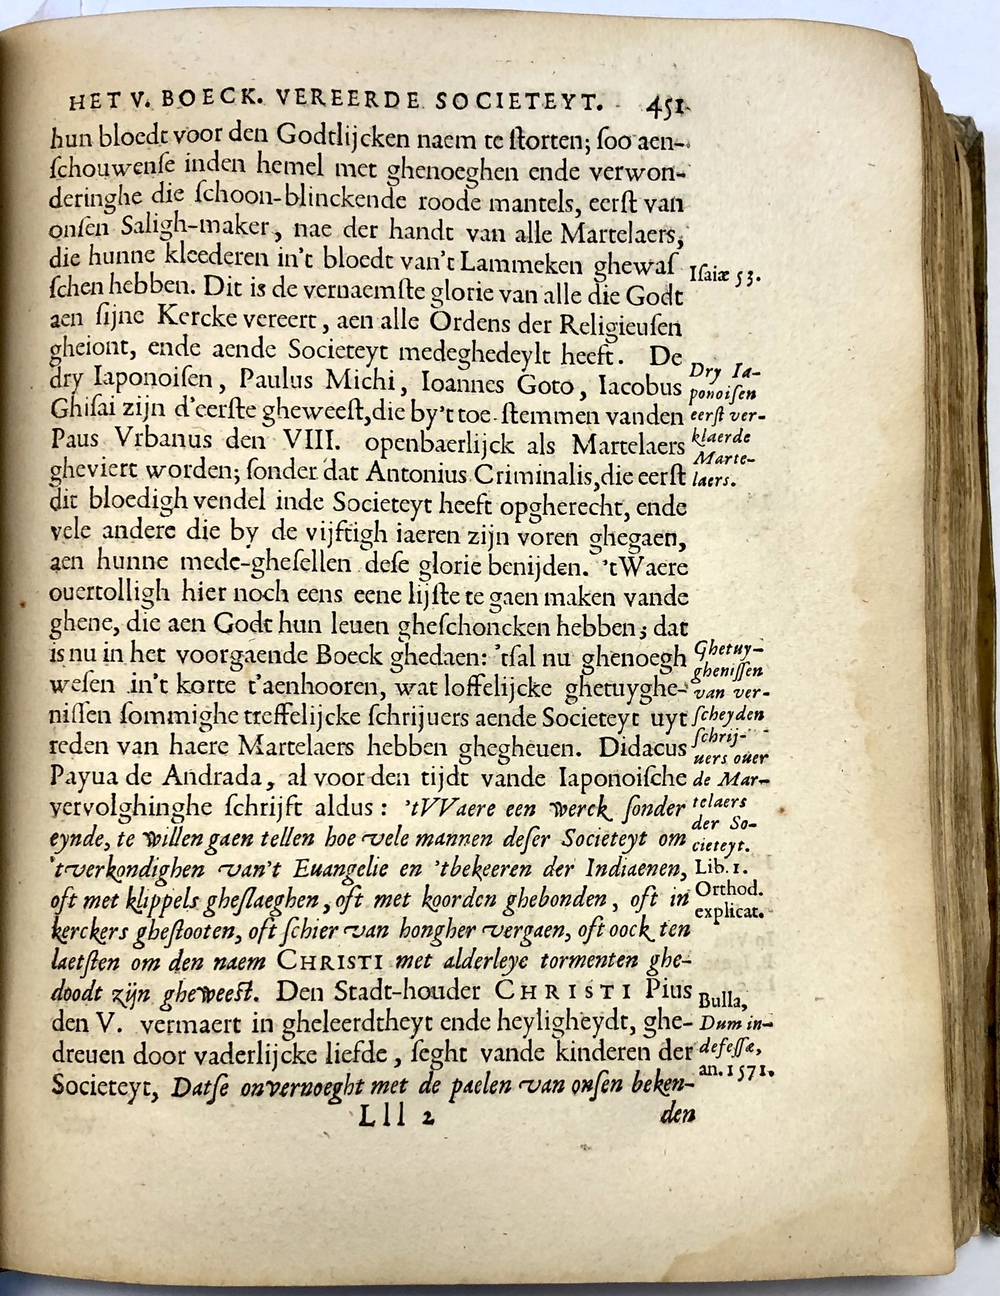 HET V. BOECK. VEREERDE SOCIETEYT. 451
hun bloedt voor den Godtlijcken naem te ſtorten; ſoo aen-
ſchouwenſe inden hemel met ghenoeghen ende verwon-
deringhe die ſchoon-blinckende roode mantels, eerſt van
onſen Saligh-maker, nae der handt van alle Martelaers,
die hunne kleederen in't bloedt van't Lammeken ghewaſ
ſchen hebben. Dit is de vernaemſte glorie van alle die Godt
aen ſijne Kercke vereert, aen alle Ordens der Religieuſen
gheiont, ende aende Societeyt medeghedeylt heeft. De
dry Iaponoiſen, Paulus Michi, Ioannes Goto, Iacobus
Ghiſai zijn d'eerſte gheweeſt, die by't toe-ſtemmen vanden
Paus Vrbanus den VIII. openbaerlijck als Martelaers
gheviert worden; ſonder dat Antonius Criminalis, die eerſt
dit bloedigh vendel inde Societeyt heeft opgherecht, ende
vele andere die by de vijftigh iaeren zijn voren ghegaen,
aen hunne mede-gheſellen deſe glorie benijden. 'tWaere
ouertolligh hier noch eens eene lijſte te gaen maken vande
ghene, die aen Godt hun leuen gheſchoncken hebben; dat
is nu in het voorgaende Boeck ghedaen: 'tſal nu ghenoegh
weſen in't korte t'aenhooren, wat loffelijcke ghetuyghe-
niſſen ſommighe treffelijcke ſchrijuers aende Societeyt uyt
reden van haere Martelaers hebben ghegheuen. Didacus
Payua de Andrada, al voor den tijdt vande Iaponoiſche
vervolghinghe ſchrijft aldus: 'tVVaere een werck ſonder
eynde, te willen gaen tellen hoe vele mannen deſer Societeyt om
'tverkondighen van't Euangelie en 'tbekeeren der Indiaenen,
oft met klippels gheſlaeghen, oft met koorden ghebonden, oft in
kerckers gheſlooten, oft ſchier van hongher vergaen, oft oock ten
laetſten om den naem CHRISTI met alderleye tormenten ghe-
doodt zijn gheweeſt. Den Stadt-houder CHRISTI Pius
den V. vermaert in gheleerdtheyt ende heyligheydt, ghe-
dreuen door vaderlijcke liefde, ſeght vande kinderen der
Societeyt, Datſe onvernoeght met de paelen van onſen beken-
Lll 2 den
Iſaiæ 53.
Dry Ia-
ponoiſen
eerſt ver-
klaerde
Marte-
laers.
Ghetuy-
gheniſſen
van ver-
ſcheyden
ſchrij-
uers ouer
de Mar-
telaers
der So-
cieteyt.
Lib. 1.
Orthod.
explicat.
Bulla,
Dum in-
defeſſæ,
an. 1571.